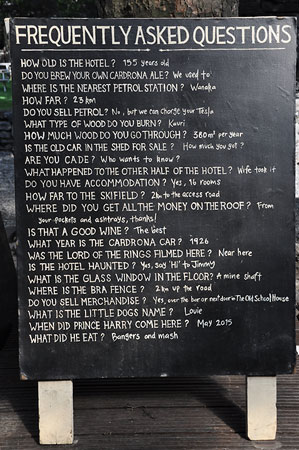 FREQUENTLY ASKED QUESTIONS
HOW OLD IS THE HOTEL? 155 years old
DO YOU BREW YOUR OWN CARDRONA ALE? We used to
WHERE IS THE NEAREST PETROL STATION? Wanaka
HOW FAR? 23 km
DO YOU SELL PETROL? No, but we can charge your Tesla
WHAT TYPE OF WOOD DO YOU BURN? Kauri
HOW MUCH WOOD DO YOU GO THROUGH? 380m³ per year
IS THE OLD CAR IN THE SHED FOR SALE? How much you got?
ARE YOU CADE? Who wants to know?
WHAT HAPPENED TO THE OTHER HALF OF THE HOTEL? Wife took it
DO YOU HAVE ACCOMMODATION? Yes, 16 rooms
HOW FAR TO THE SKIFIELD? to the access road
WHERE DID YOU GET ALL THE MONEY ON THE ROOF? From
your pockets and ashtrays, thanks!
IS THAT A GOOD WINE? The best
WHAT YEAR IS THE CARDRONA CAR? 1926
WAS THE LORD OF THE RINGS FILMED HERE? Near here
IS THE HOTEL HAUNTED? Yes, say 'Hi' to Jimmy
WHAT IS THE GLASS WINDOW IN THE FLOOR? A mine shaft
WHERE IS THE BRA FENCE? 2km up the road
DO YOU SELL MERCHANDISE? Yes, over the bar or next door in The Old School House
WHAT IS THE LITTLE DOGS NAME? Louie
WHEN DID PRINCE HARRY COME HERE? May 2015
WHAT DID HE EAT? Bangers and mash